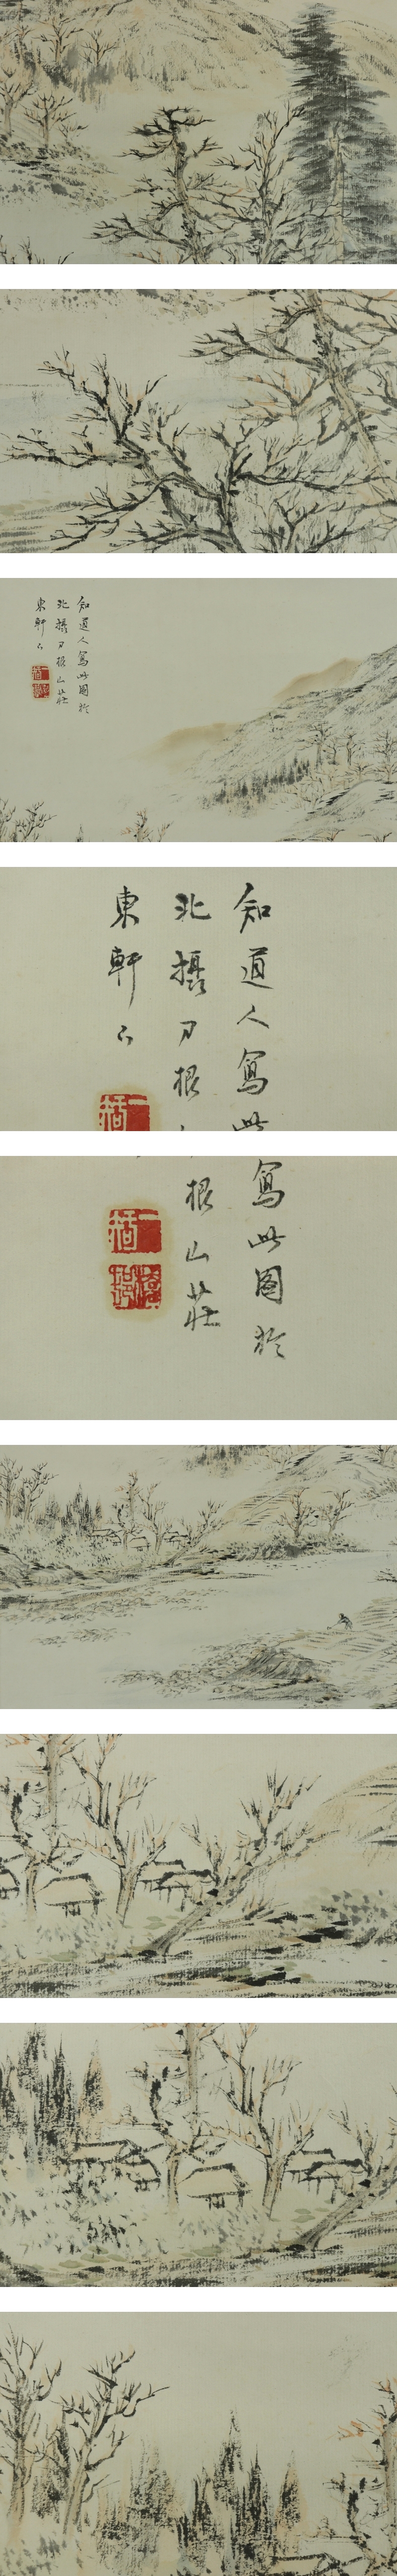 知道人寫此圖於
北攝刀根山莊
東軒下
知道人寫此
北攝刀根
東軒下
寫此圖於
根山莊